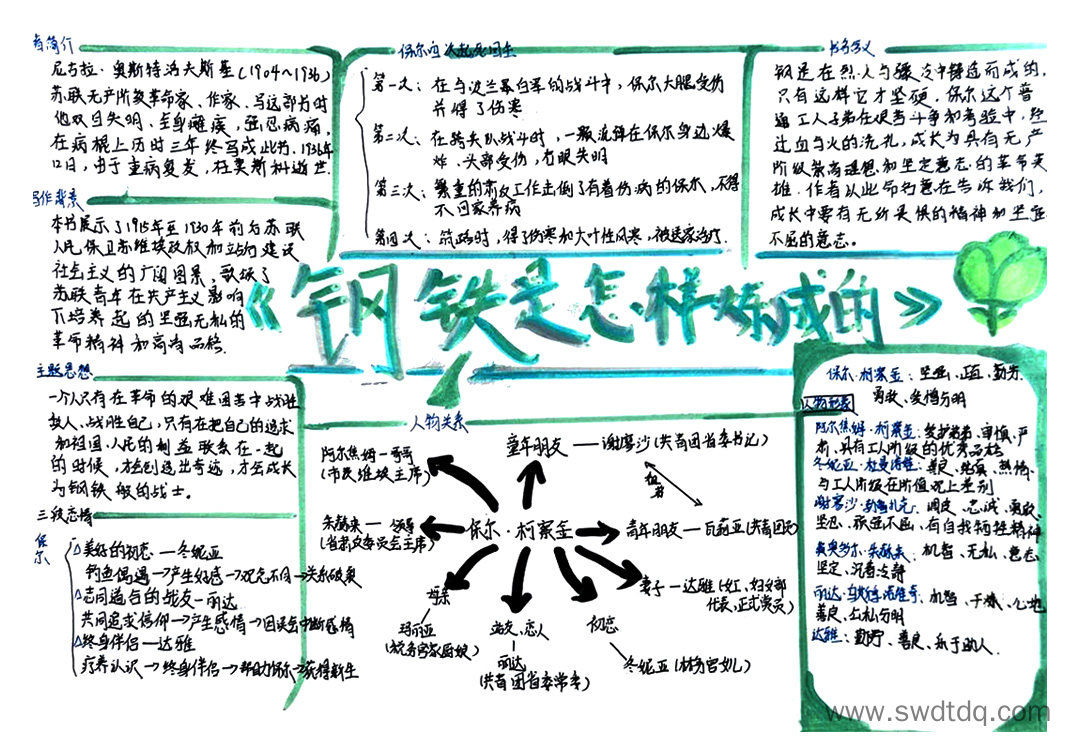 者简介
尼古拉·奥斯特洛夫斯基(1904~1936)
苏联无产阶级革命家、作家、写这部书时
他双目失明、全身瘫痪，强忍病痛，
在病榻上历时三年终写成此书。1936年
12月，由于重病复发，在莫斯科逝世.
写作背景
本书展示了1915年至1930年前后苏联
人民保卫苏维埃政权和
社会主义的广阔图景，歌颂了
苏联青年在共产主义影响
下培养起的坚强无私的
革命精神和高尚品格.
主题思想
一个人只有在革命的艰难困苦中战胜
敌人、战胜自己，只有在把自己的追求
和祖国、人民的利益联系在一起
的时候，才会创造出奇迹，才会成长
为钢铁般的战士。
三段恋情
保尔
△美好的初恋—冬妮亚
钓鱼偶遇→产生好感→观念不同→关系破裂
△志同道合的战友—丽达
共同追求信仰→产生感情→因误会中断感情
△终身伴侣—达雅
疗养认识→终身伴侣→帮助保尔→获得新生
保尔四次起死回生
第一次：在与波兰白军的战斗中，保尔大腿受伤
并得了伤寒
第二次：在骑兵队战斗时，一颗流弹在保尔身边爆
炸、头部受伤，右眼失明
第三次：繁重的工作击倒了有着伤病的保尔，不得
不回家养病
第四次：筑路时，得了伤寒和大叶性风寒，被送家治疗.
书名含义
钢是在烈火与骤冷中铸造而成的，
只有这样它才坚硬，保尔这个普
通工人子弟在艰苦斗争和考验中，经
过血与火的洗礼，成长为具有无产
阶级崇高理想和坚定意志的革命英
雄.作者以此命名意在告诉我们，
成长中要有无所畏惧的精神和坚强
不屈的意志。
《钢铁是怎样炼成的》
人物关系
阿尔焦姆—哥哥
(市苏维埃主席)
童年朋友——谢廖沙(共青团省委书记)
朱赫来—领导
(省肃反委员会主席)
保尔·柯察金
青年朋友—瓦莉亚(共青团员)
母亲
玛丽亚
战友、恋人
丽达
(共青团省委常委)
初恋
冬妮亚(林务官女儿)
妻子—达雅(女工、妇女部
代表、正式党员)
保尔·柯察金：坚强、正直、勤劳、
勇敢、爱憎分明
人物形象
阿尔焦姆·柯察金：爱护弟弟、谨慎、严
肃、具有工人阶级的优秀品格
冬妮亚·杜曼诺娃：善良、纯真、热情、
与工人阶级在价值观上差别
谢廖沙·勃鲁扎克：调皮、忠诚、勇敢、
坚忍、顽强不屈、有自我牺牲精神
费奥多尔·朱赫来：机智、无私、意志
坚定、沉着冷静
丽达·乌斯季诺维奇：机智、干练、心地
善良、公私分明
达雅：勤劳、善良、乐于助人.
www.swdtdq.com